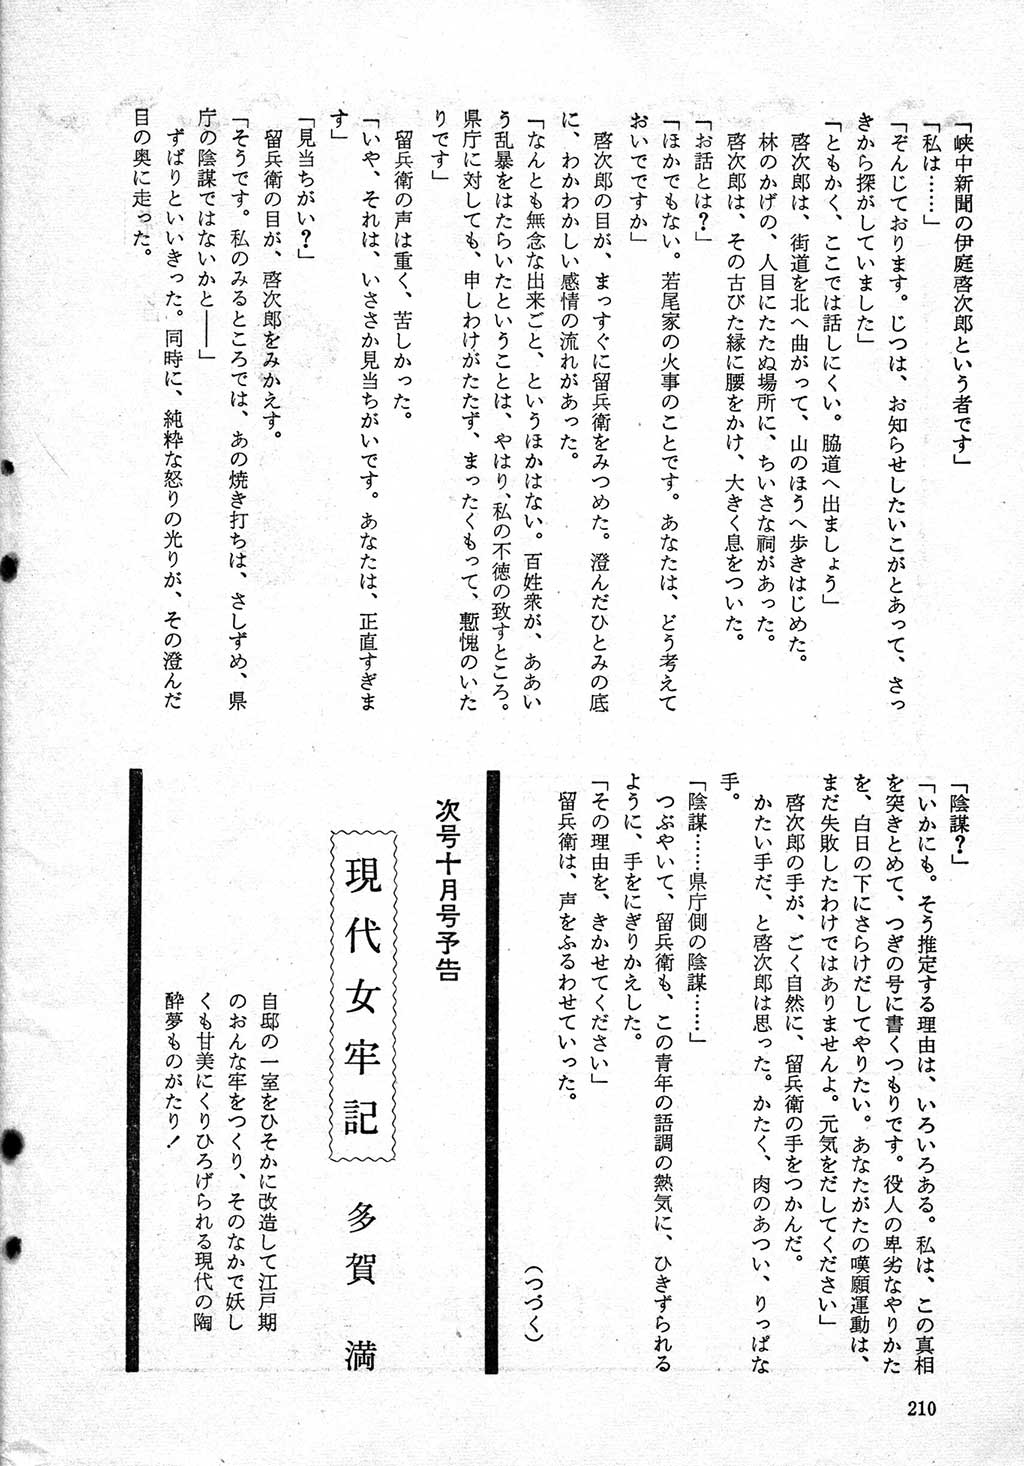 「峡中新聞の伊庭啓次郎という者です」
「私は……」
「ぞんじております。じつは、お知らせしたいこがとあって、さっ
きから探がしていました」
「ともかく、ここでは話しにくい。脇道へ出ましょう」
啓次郎は、街道を北へ曲がって、山のほうへ歩きはじめた。
林のかげの、人目にたたぬ場所に、ちいさな祠があった。
啓次郎は、その古びた縁に腰をかけ、大きく息をついた。
「お話とは？」
「ほかでもない。若尾家の火事のことです。あなたは、どう考えて
おいでですか」
啓次郎の目が、まっすぐに留兵衛をみつめた。澄んだひとみの底
に、わかわかしい感情の流れがあった。
「なんとも無念な出来ごと、というほかはない。百姓衆が、ああい
う乱暴をはたらいたということは、やはり、私の不徳の致すところ。
県庁に対しても、申しわけがたたず、まったくもって、慙愧のいた
りです」
留兵衛の声は重く、苦しかった。
「いや、それは、いささか見当ちがいです。あなたは、正直すぎま
す」
「見当ちがい？」
留兵衛の目が、啓次郎をみかえす。
「そうです。私のみるところでは、あの焼き打ちは、さしずめ、県
庁の陰謀ではないかと――」
ずばりといいきった。同時に、純粋な怒りの光りが、その澄んだ
目の奥に走った。
「陰謀？」
「いかにも。そう推定する理由は、いろいろある。私は、この真相
を突きとめて、つぎの号に書くつもりです。役人の卑劣なやりかた
を、白日の下にさらけだしてやりたい。あなたがたの嘆願運動は、
まだ失敗したわけではありませんよ。元気をだしてください」
啓次郎の手が、ごく自然に、留兵衛の手をつかんだ。
かたい手だ、と啓次郎は思った。かたく、肉のあつい、りっぱな
手。
「陰謀……県庁側の陰謀……」
つぶやいて、留兵衛も、この青年の語調の熱気に、ひきずられる
ように、手をにぎりかえした。
「その理由を、きかせてください」
留兵衛は、声をふるわせていった。
（つづく）
次号十月号予告
現代女牢記 多賀満
自邸の一室をひそかに改造して江戸期
のおんな牢をつくり、そのなかで妖し
くも甘美にくりひろげられる現代の陶
酔夢ものがたり！
210